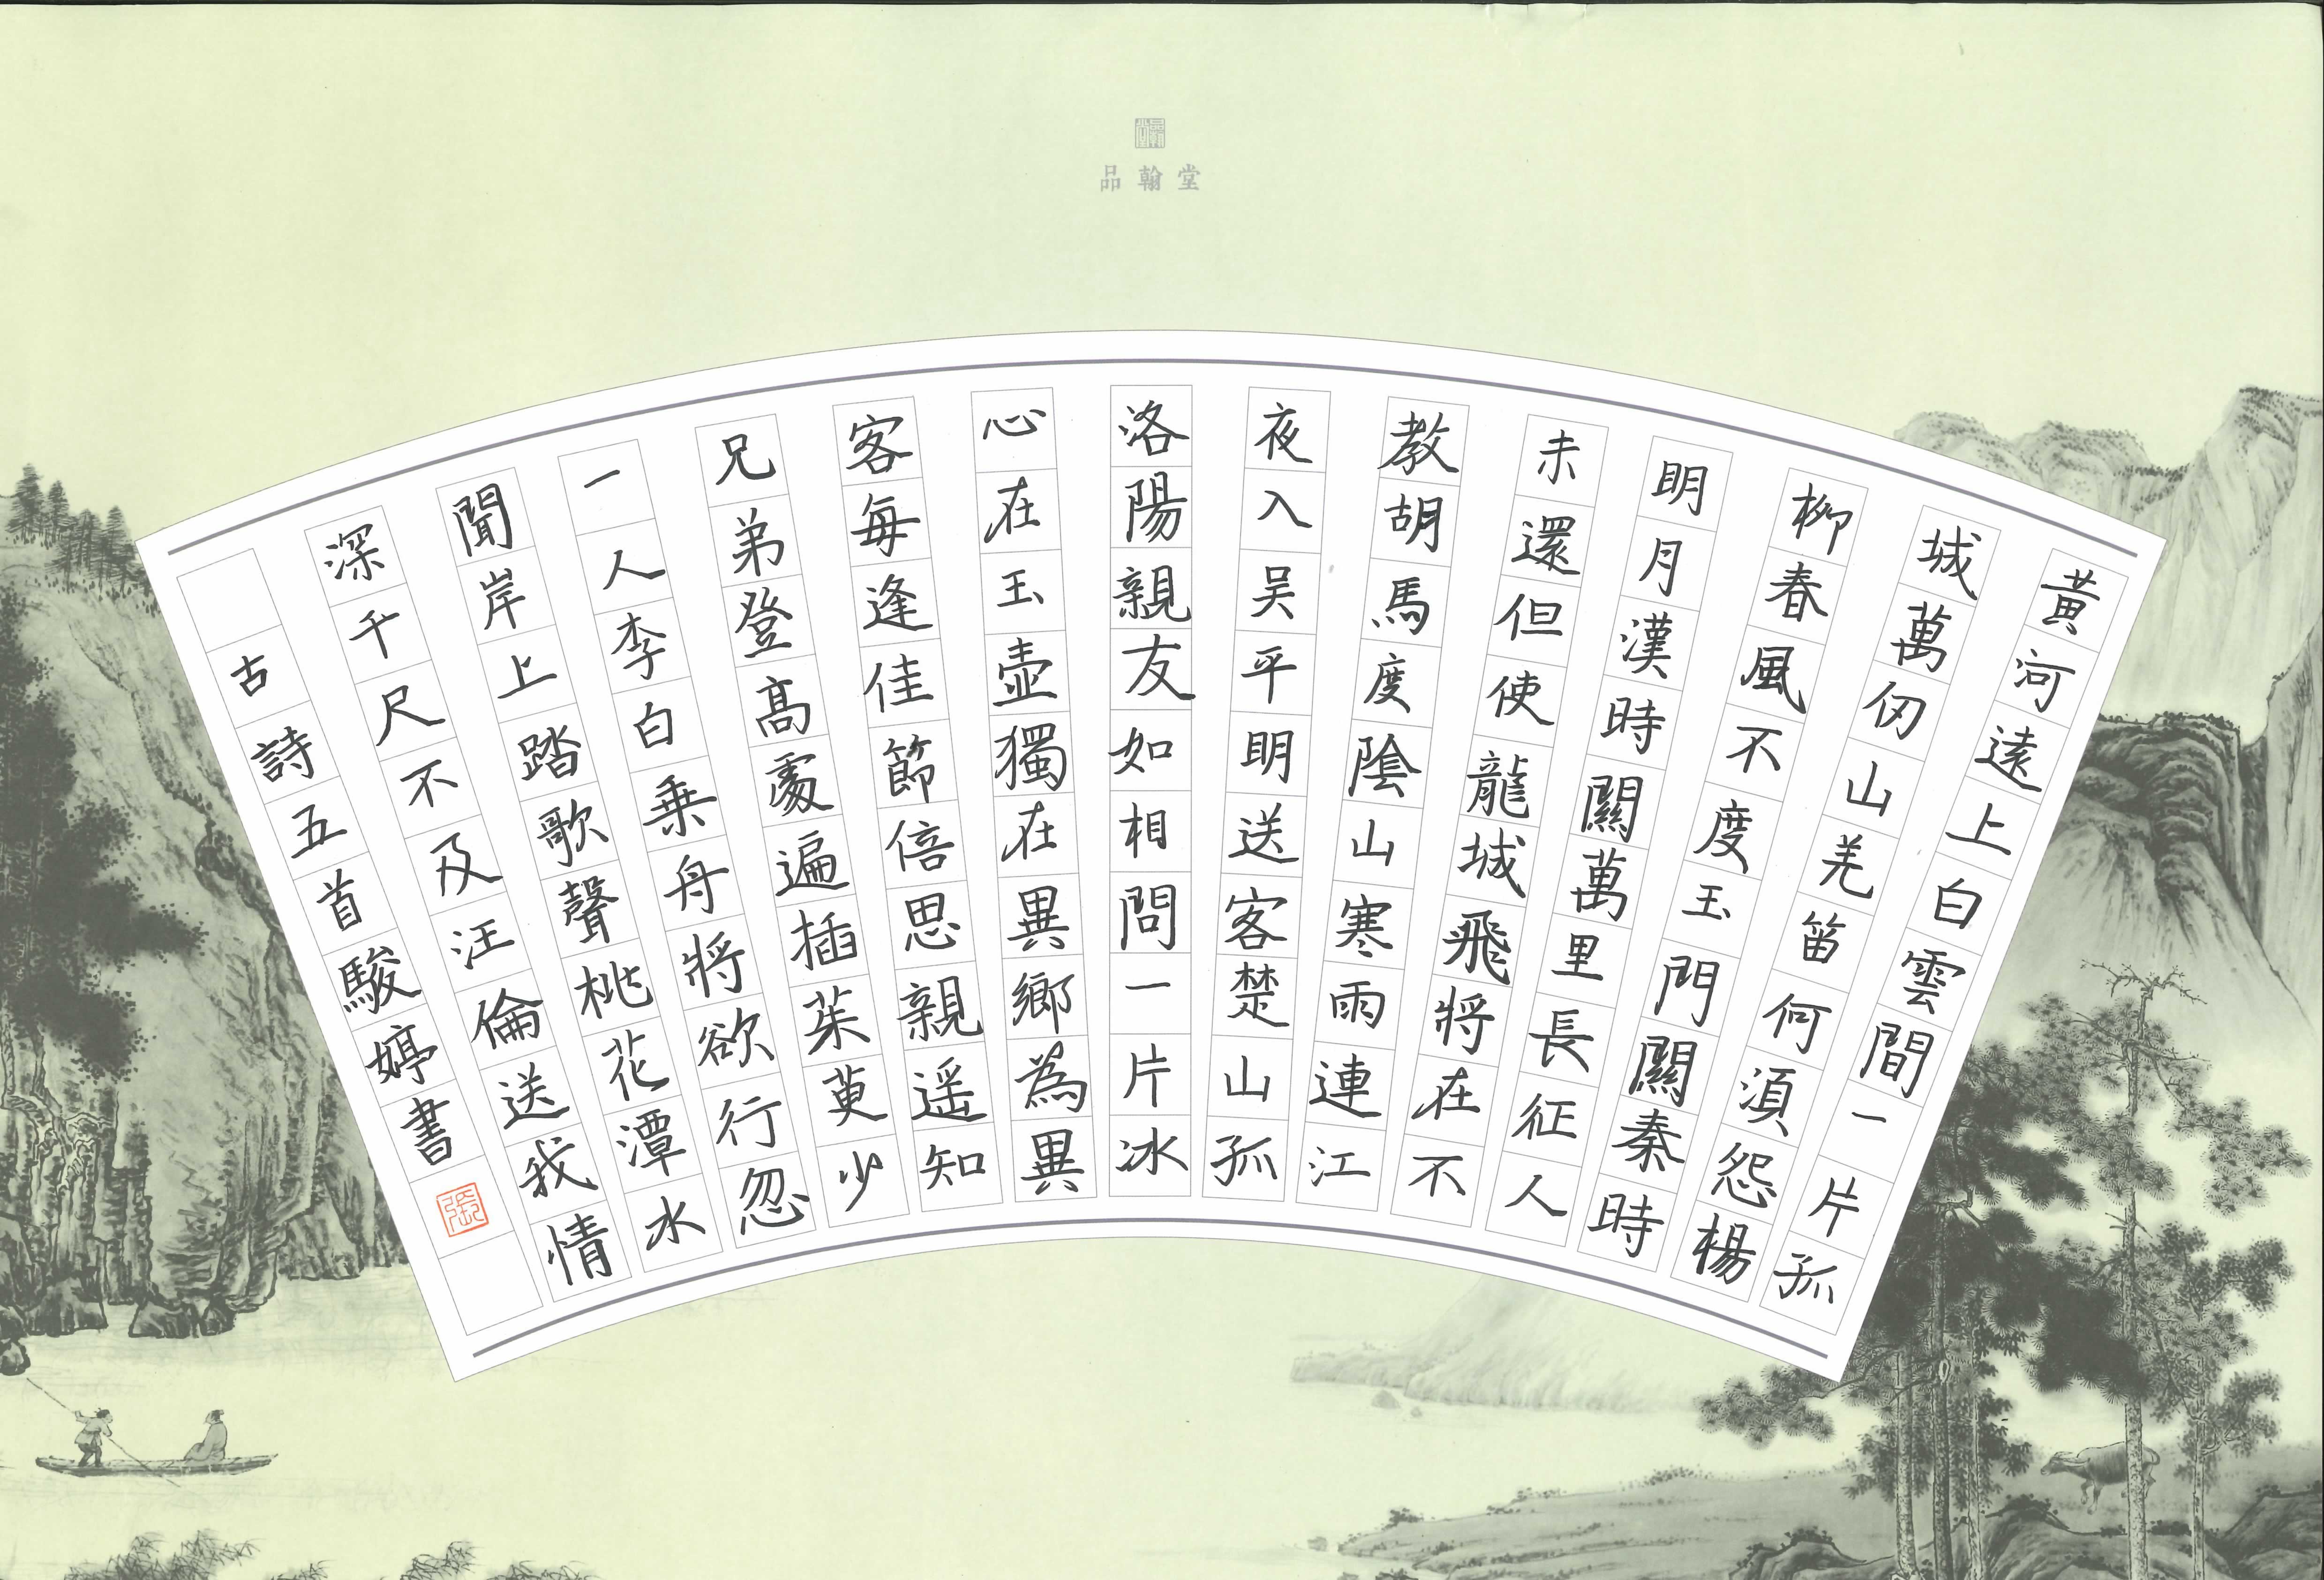 品翰堂
品翰堂
黃河遠上白雲間一片孤
城萬仞山羌笛何須怨楊
柳春風不度玉門關秦時
明月漢時關萬里長征人
未還但使龍城飛將在不
教胡馬度陰山寒雨連江
夜入吴平明送客楚山孤
洛陽親友如相問一片冰
心在玉壺獨在異鄉為異
客每逢佳節倍思親遥知
兄弟登高處遍插茱萸少
一人李白乘舟將欲行忽
聞岸上踏歌聲桃花潭水
深千尺不及汪倫送我情
古詩五首駿婷書
張